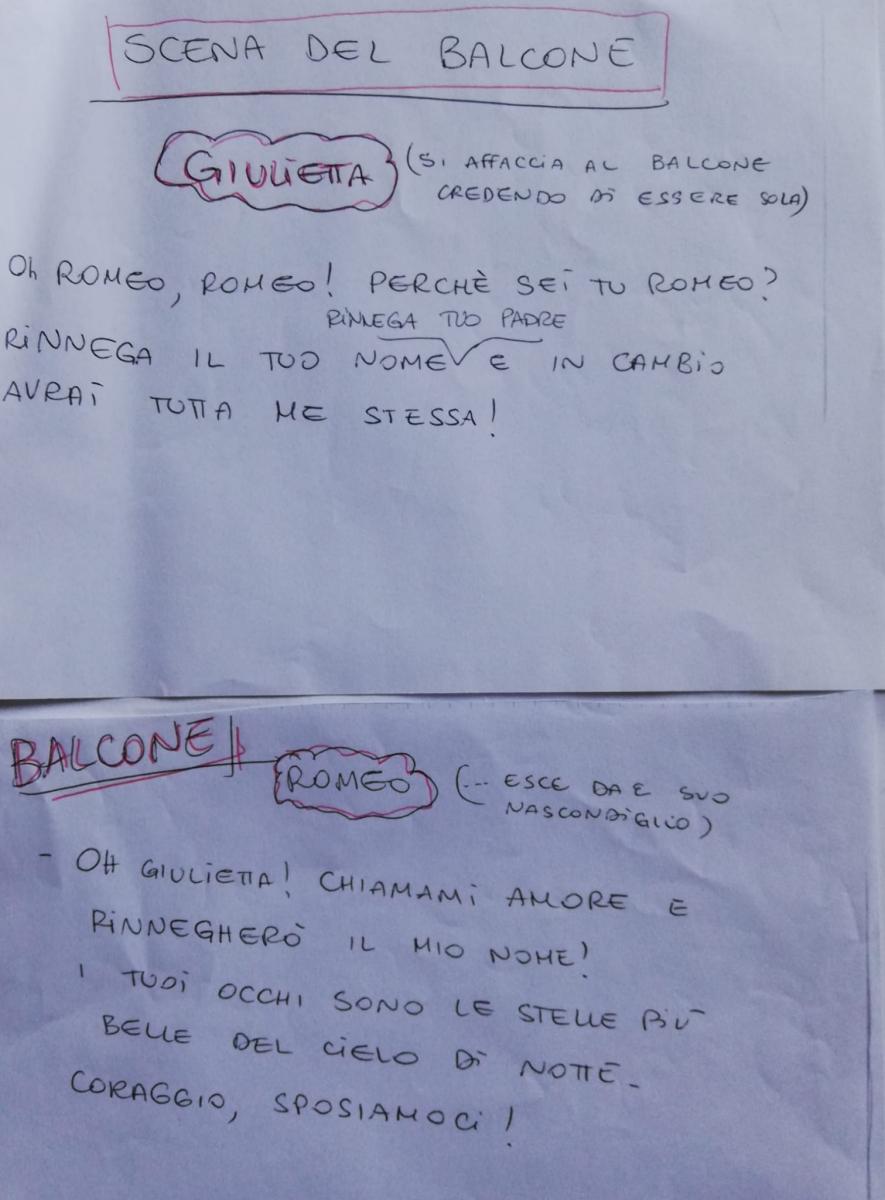 SCENA DEL BALCONE
GIULIETTA (SI AFFACCIA AL BALCONE
CREDENDO DI ESSERE SOLA)
Oh ROMEO, ROMEO! PERCHÈ SEI TU ROMEO?
RINNEGA TUO PADRE
RINNEGA IL TUO NOME E IN CAMBIO
AVRAI TUTTA ME STESSA!
BALCONE
ROMEO (... ESCE DAL SUO
NASCONDIGLIO)
- OH GIULIETTA! CHIAMAMI AMORE E
RINNEGHERÒ IL MIO NOME!
I TUOI OCCHI SONO LE STELLE PIÙ
BELLE DEL CIELO DI NOTTE-
CORAGGIO, SPOSIAMOCI!